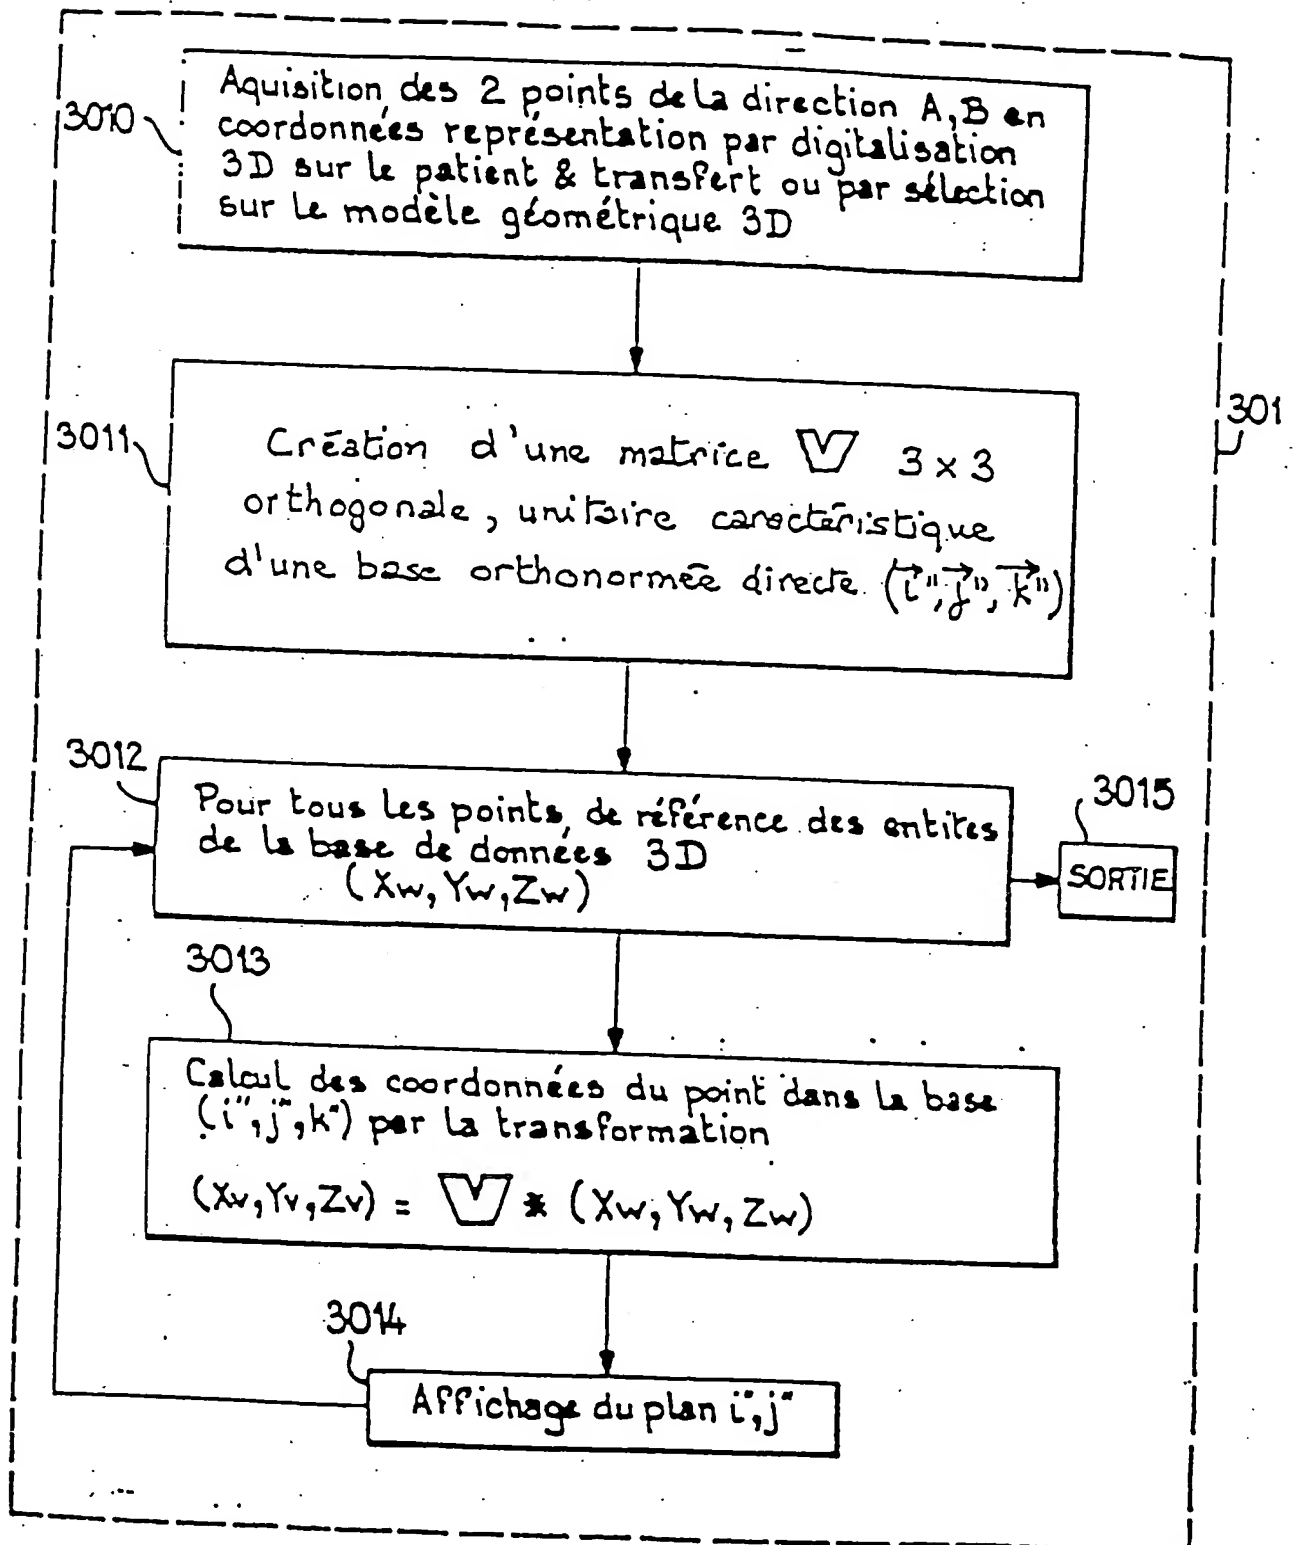 3010
Aquisition des 2 points de la direction A,B en
coordonnées représentation par digitalisation
3D sur le patient & transfert ou par sélection
sur le modèle géométrique 3D
301
3011
Création d'une matrice V 3 x 3
orthogonale, unitaire caractéristique
d'une base orthonormée directe (i⃗", j⃗", k⃗")
3012
Pour tous les points, de référence des entites
de la base de données 3D
(Xw, Yw, Zw)
3015
SORTIE
3013
Calcul des coordonnées du point dans la base
(i", j", k") par la transformation
(Xv, Yv, Zv) = V * (Xw, Yw, Zw)
3014
Affichage du plan i", j"